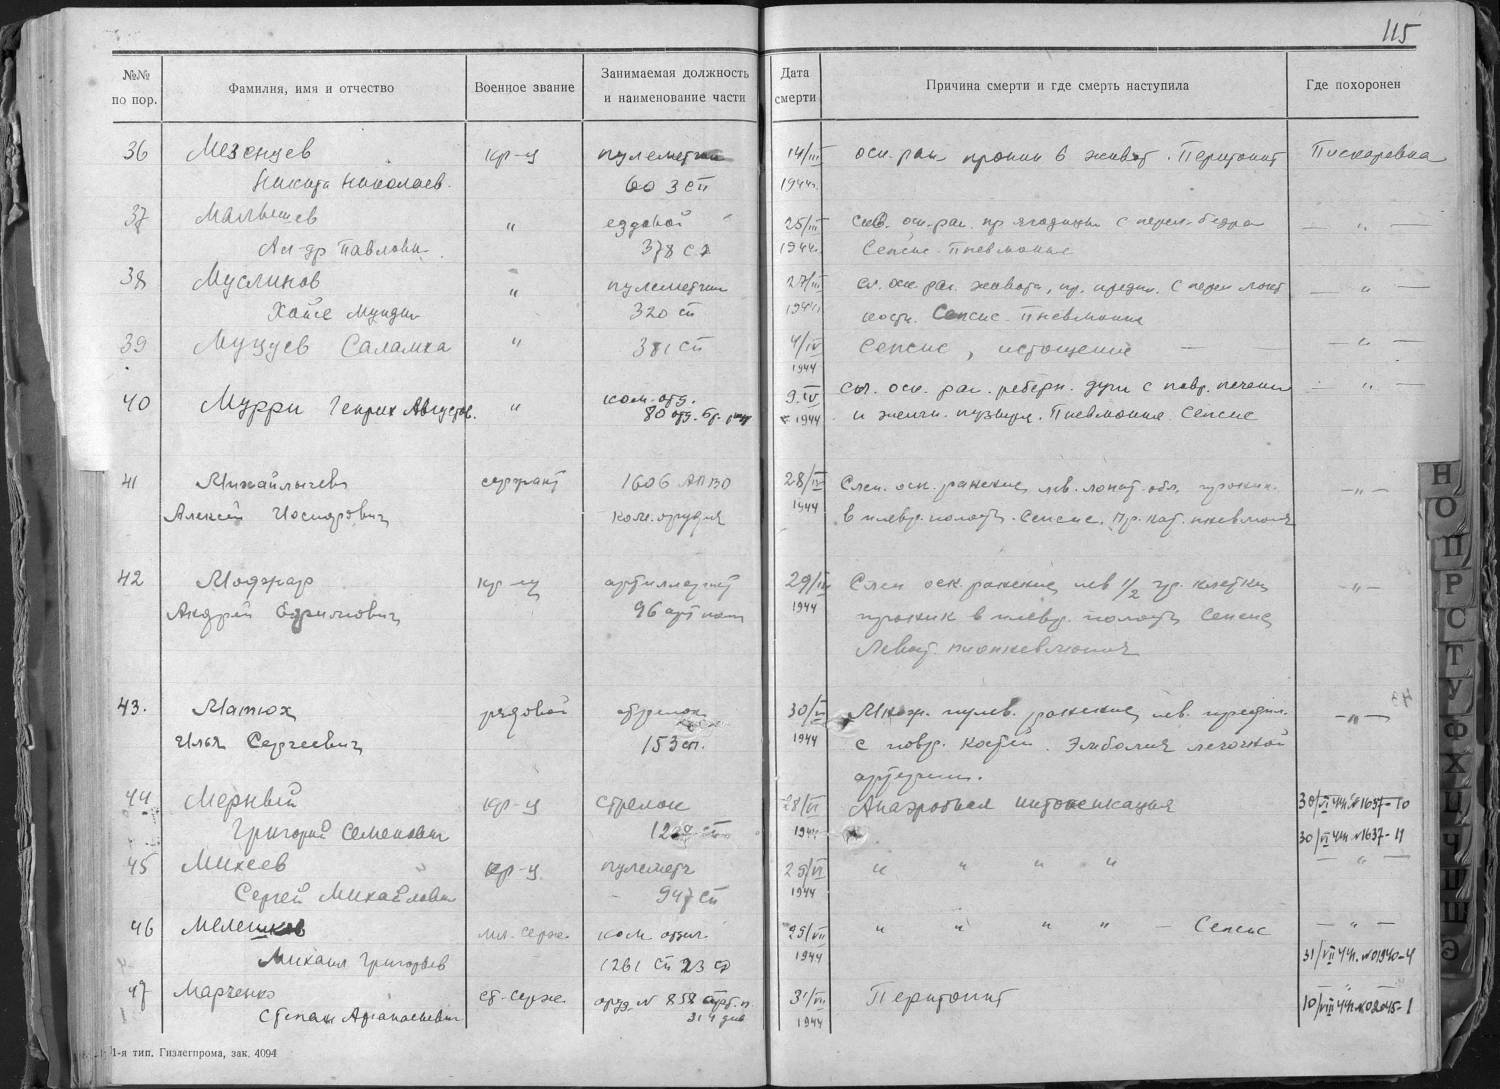 115
№№ по пор.
Фамилия, имя и отчество
Военное звание
Занимаемая должность и наименование части
Дата смерти
Причина смерти и где смерть наступила
Где похоронен
36 Мезенцев кр-ц пулеметчик 14/III оск. ран. проник в живот. Перитонит Пискаревка
Никита Николаев. 60 3 сп 1944г.
37 Малышев " ездовой 25/III слеп. оск. ран. пр. ягодицы с перел. бедра — " —
Ал-др Павлович 378 с 1944г. Сепсис. Пневмония
38 Муслинов " пулеметчик 27/III сл. оск. ран. живота, пр. предпл. с перел. локт — " —
320 сп 1944 кости. Сепсис. Пневмония
39 Муцуев Саламха " 381 сп 4/IV Сепсис, истощение — — — " —
1944
40 Мурри Генрих Августов. " ком. отд. 9.IV сл. оск. ран. реберн. дуги с повр. печени — " —
80 отд. 1944 и желчн. пузыря. Пневмония. Сепсис
41 Михайлычев сержант 1606 АП 28/IV Слеп. оск. ранение лев. лопат. обл. проник. — " —
Алексей ком. орудия 1944 в плевр. полость. Сепсис. пневмония
42 кр-ц артиллерист 29/IV Слеп оск. ранение лев 1/2 гр. клетки — " —
Андрей 96 арт полк 1944 проник в плевр. полость Сепсис
43. Матюх рядовой стрелок 30/VI Множ. пулев. ранение лев. предпл. — " —
Илья Сергеевич 153 сп. 1944 с повр. костей. Эмболия легочной
артерии.
44 Мерный кр-ц стрелок 28/VI Анаэробная интоксикация 30/VI 44г. №1637-10
Григорий Семенович 1944 30/VI 44г. №1637-11
45 Михеев кр-ц пулеметч 29/VI " " " " — " —
Сергей Михайлович — 947 сп 1944
46 Мелешков мл. серж. ком. отдел. 29/VII " " " " — Сепсис — " —
Михаил Григорьев 1261 сп 23 1944 31/VII 44г. №01940-4
47 Марченко ст. серж. оруд. № 858 арт. п. 31/VII Перитонит "
Степан Афанасьевич 314 див 1944 10/VIII 44г. №02045-1
1-я тип. Гизлегпрома, зак. 4094
Н
О
П
Р
С
Т
У
Ф
Х
Ц
Ч
Ш
Щ
Э